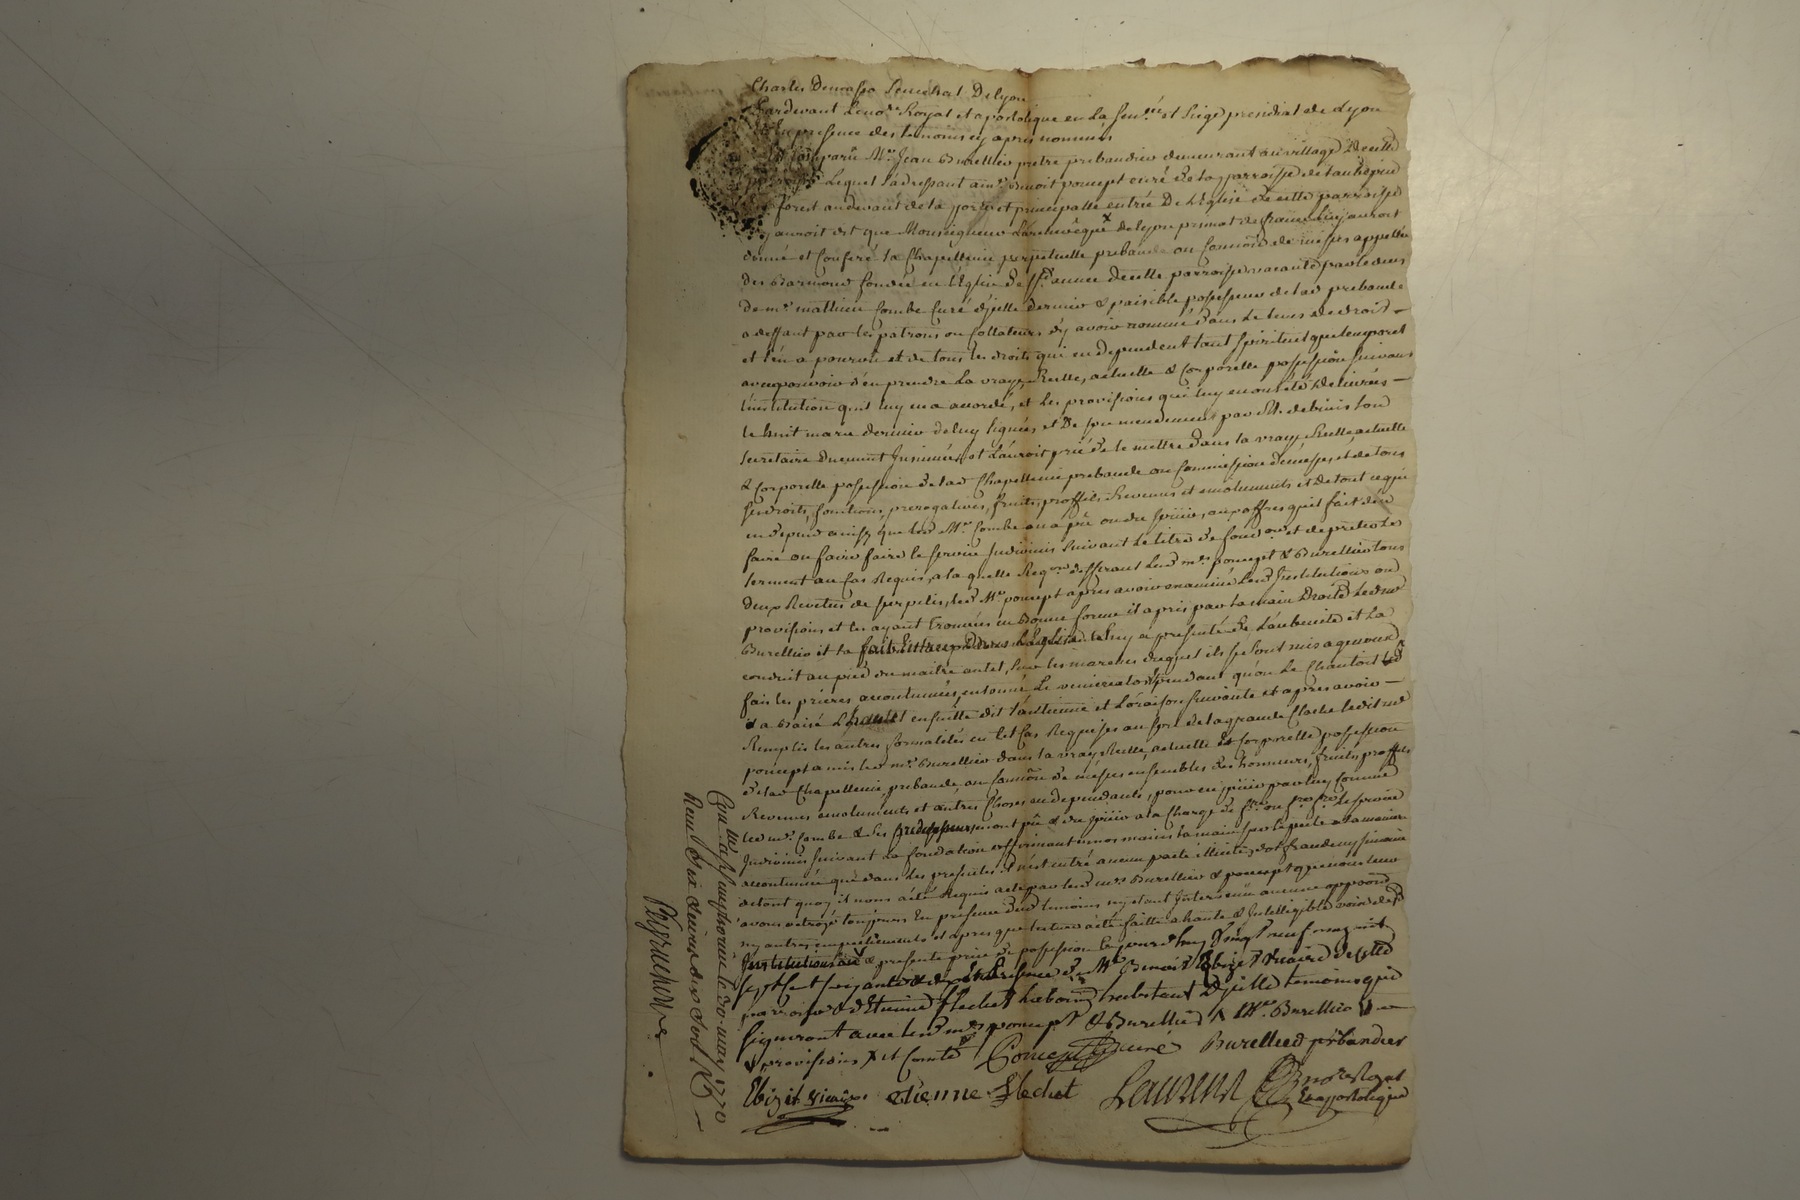 Charles Demasso Senechal De lyon
Pardevant Le no.re Royal et apostolique en La Sen.ée et Siege presidial de Lyon
En presence des temoins cy apres nommés
Est Comparû M.re Jean Burellier pretre prebandier demeurant au village
Lequel s'adressant a m.re Benoit poncept curé de la parroisse de
forest au devant de la porte et principalle entrée De L'Eglise de cette parroisse
luy auroit dit que Monseigneur Larcheveque de lyon primat de france luy auroit
donné et Conferé la Chapellenie perpetuelle prebande ou Commôn de messes appellée
des Barmond fondée en L'Eglise De S.te anne De cette parroisse vacante par le deces
de m.re mathieu Combe Curé d'jcelle dernier & paisible possesseur de lad prebande
a deffaut par les patrons ou Collateurs d'y avoir nommé dans Le tems de droit
et l'en a pourvû et de tous les droits qui en dependent tant spirituel que temporel
avec pouvoir d'en prendre La vraye, Reelle, actuelle & Corporelle possession suivant
l'institution qu'il luy en a accordé, et les provisions qui luy en ont été Delivrés
le huit mars dernier de luy signées, et De son mendement par
secretaire Duement Jnsinuées et L'auroit prié de le mettre dans la vraye Reelle, actuelle
& Corporelle possession de lad Chapellenie prebande ou Commission de messes, et de tous
ses droits, fonctions, prerogatives, fruits, proffits, Revenus et emoluments et de tout ce qui
en depend ainsy que led M.re Combe en a pû ou dû jouir, aux offres qu'il fait de
faire ou faire faire le service Judivinis suivant Le titre de fond.on et de prêter Le
serment au Cas Requis, a la quelle Req.on defferant Les d m.res poncept & Burellier tous
deux Revetus de surpelis, led M.re poncept apres avoir examiné Les d Jnstitutions ou
provisions et les ayant trouvées en Bonne forme il a pris par la main Droite Led m.re
Burellier et la fait Entrer Dans L'Eglise luy a presenté De L'au benite et La
conduit au pied du maitre autel, Sur les marches duquel ils se sont mis a genoux
fait les prieres accoutumées, entonné Le veni creator pendant qu'on Le Chantoit led
a Baisé L'autel ensuitte dit l'antienne et L'oraison suivante et apres avoir
Remplis les autres formalités en tel Cas Requises au son de la grande Cloche led m.re
poncept a mis led m.re Burellier dans la vraye Reelle, actuelle & Corporelle possession
de lad Chapellenie, prebande, ou Commôn de messes ensembles des honneurs, fruits, proffits
Revenus emoluments et autres Choses en dependants, pour en jouir par luy Comme
led m.re Combe & ses predecesseurs en ont pû & dû jouir a la Charge de f.re ou f.re f.re Le service
Judivinis suivant La fondation et affirmant en nos mains la main sur la poitrine a la maniere
accoutumée que dans les presentes il n'est entré aucun pacte illicite, dol, fraude ny simonie
de tout quoy il nous a été Requis acte par Les d m.res Burellier & poncept que nous leur
avons octroyé toujours En presence des d temoins n'y etant Jntervenû aucune opposôn
ny autres empechements et apres que lecture a été faitte a haute & Jntelligible voix des d
Jnstitutions & presente prise de possession Ce jourd'huy vingt neuf may mil
sept Cent soixante & dix En Presence de M.re Benoit Ebizet vicaire de cette
parroisse & d'Etienne flechet Laboureur habitant D'jcelle temoins qui
signeront avec Les d m.res poncept & Burellier M.re Burellier
provisions et Combe Poncept Curé Burellier prébandier
Ebizet vicaire etienne flechet Laurent no.re Royal
Et apostolique
Con.lé a St simphorien le 30. may 1770
Reçu Six livres dix sols
Peyrachon